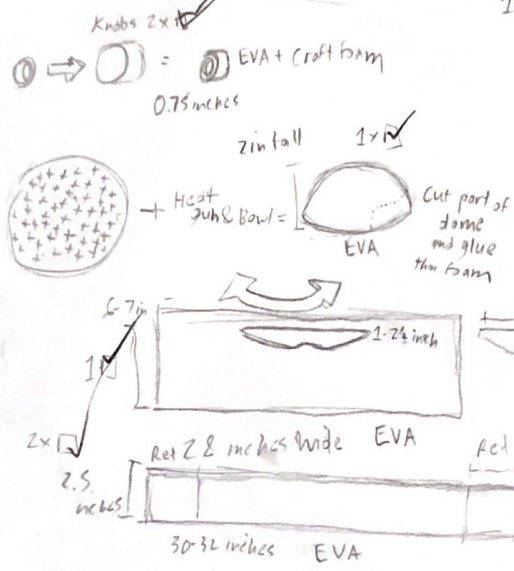 Knobs 2x
= EVA + Craft foam
0.75 inches
2in tall 1x
+ Heat gun & Bowl =
Cut part of dome and glue thin foam
EVA
6-7in
1-2½ inch
1
2x
28 inches wide EVA
2.5 inches
30-32 inches EVA